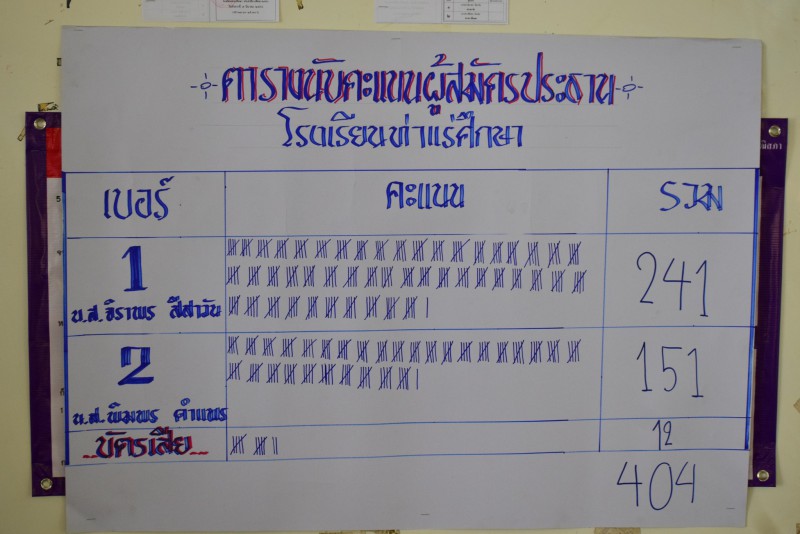 ตารางนับคะแนนผู้สมัครประธาน
โรงเรียนท่าแร่ศึกษา
เบอร์ คะแนน รวม
1 241
น.ส.จิราพร สีสาวัน
2 151
น.ส.พิมพร คำแพร
บัตรเสีย 12
404